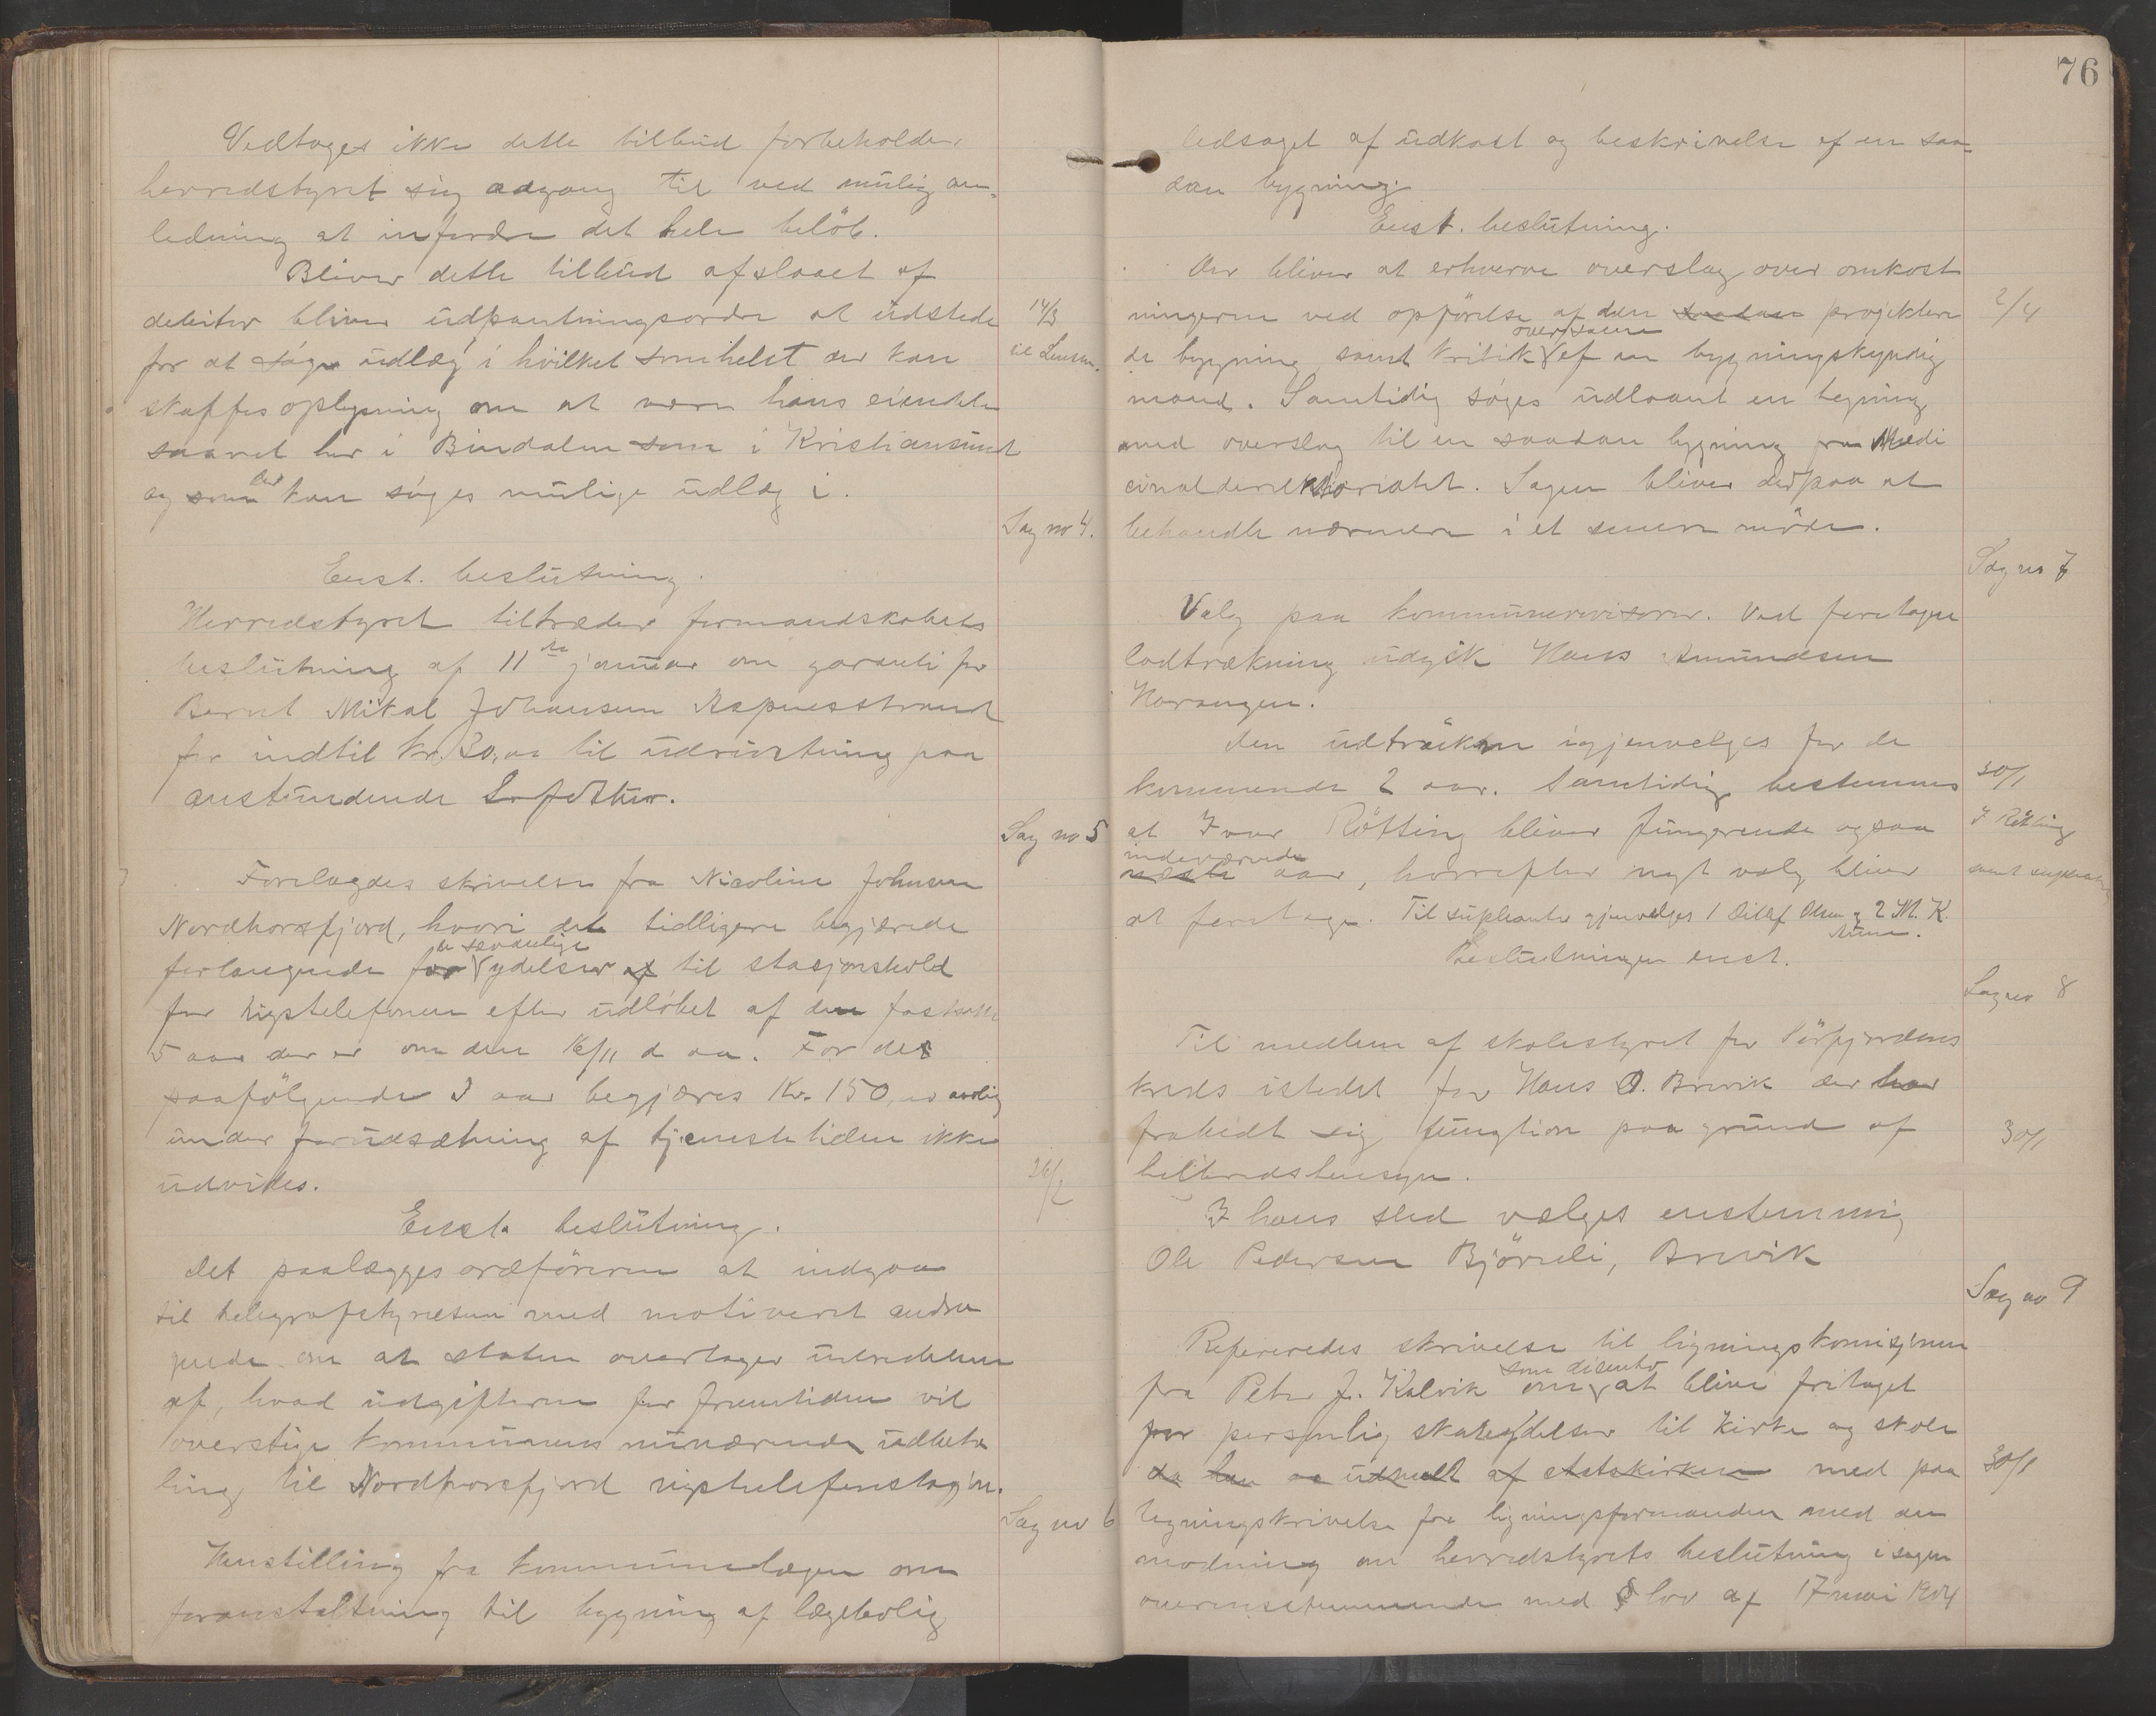 Vedtages ikke dette tilbud forbeholder
herredstyret sig adgang til ved mulig an-
ledning at infordre det hele beløb.
Bliver dette tilbud afslaaet af
debitor bliver udpantningsordre at udstede
14/3
for at søge udlæg i hvilket somhelst der kan
til Lensm.
skaffes oplysning om at være hans eiendele
saavel her i Bindalen som i Kristiansund
og som der kan søges mulige udlæg i.
Sag no 4.
Enst. beslutning.
Herredstyret tiltræder formandskabets
beslutning af 11te januar om garanti for
Bernt Mikal Johansen Aspnesstrand
for indtil kr. 30,00 til udrustning paa
anstundende Lofottur.
Sag no 5
Forelagdes skrivelse fra Nicoline Johnsen
Nordhorsfjord, hvori det tidligere begjærede
forlangende for sædvanlige ydelser af til stasjonshold
for rigstelefonen efter udløbet af den fastsatte
5 aar der er om den 16/11 d aa. For des
paafølgende 3 aar begjæres Kr. 150,00 aarlig
under forudsætning af tjenestetiden ikke
udvides.
26/2
Enst. beslutning.
Det paalægges ordføreren at indgaa
til telegrafstyrelsen med motiveret andra
gende om at staten overtager udredelsen
af, hvad udgifterne for fremtiden vil
overstige kommunens nuværende udbeta
ling til Nordhorsfjord rigstelefonstasjon.
Sag no 6
Henstilling fra kommunelægen om
foranstaltning til bygning af lægebolig
76
ledsaget af udkast og beskrivelse af en saa-
dan bygning.
Enst. beslutning.
Der bliver at erhverve overslag over omkost
ningerne ved opførelse af den saadan projektere
2/4
de bygning samt kritik over samme af en bygningskyndig
mand. Samtidig søges udlaant en tegning
med overslag til en saadan bygning fra Medi
cinaldirektoriatet. Sagen bliver derpaa at
behandle nærmere i et senere møde.
Sag no 7
Valg paa kommunerevisorer. Ved foretagen
lodtrækning udgik Hans Amundsen
Horangen.
Den udtrækne igjenvelges for de
kommende 2 aar. Samtidig bestemmes
30/1
at Ivar Røtting bliver fungerende ogsaa
I Røtting
indeværende
næste aar, hvorefter nyt valg bliver
samt supleant
at foretage. Til supleanter gjenvelges 1 Ditlef Olsen og 2 M. K.
Aune.
Beslutningen enst.
Sag no 8
Til medlem af skolestyret for Sørfjordens
kreds istedet for Hans O. Brevik der har
frabedt sig fungtion paa grund af
30/1
helbredshensyn.
I hans sted vælges enstemmig
Ole Pedersen Bjørneli, Brevik
Sag no 9
Refereredes skrivelse til ligningskomisjonen
fra Peter J. Kalvik om som disenter at blive fritaget
for personlig skatteydelser til Kirke og skole
da han er udmeldt af statskirken med paa
30/1
tegningskrivelse fra ligningsformanden med an
modning om herredstyrets beslutning i sagen
overensstemmende med § lov af 17 mai 1904